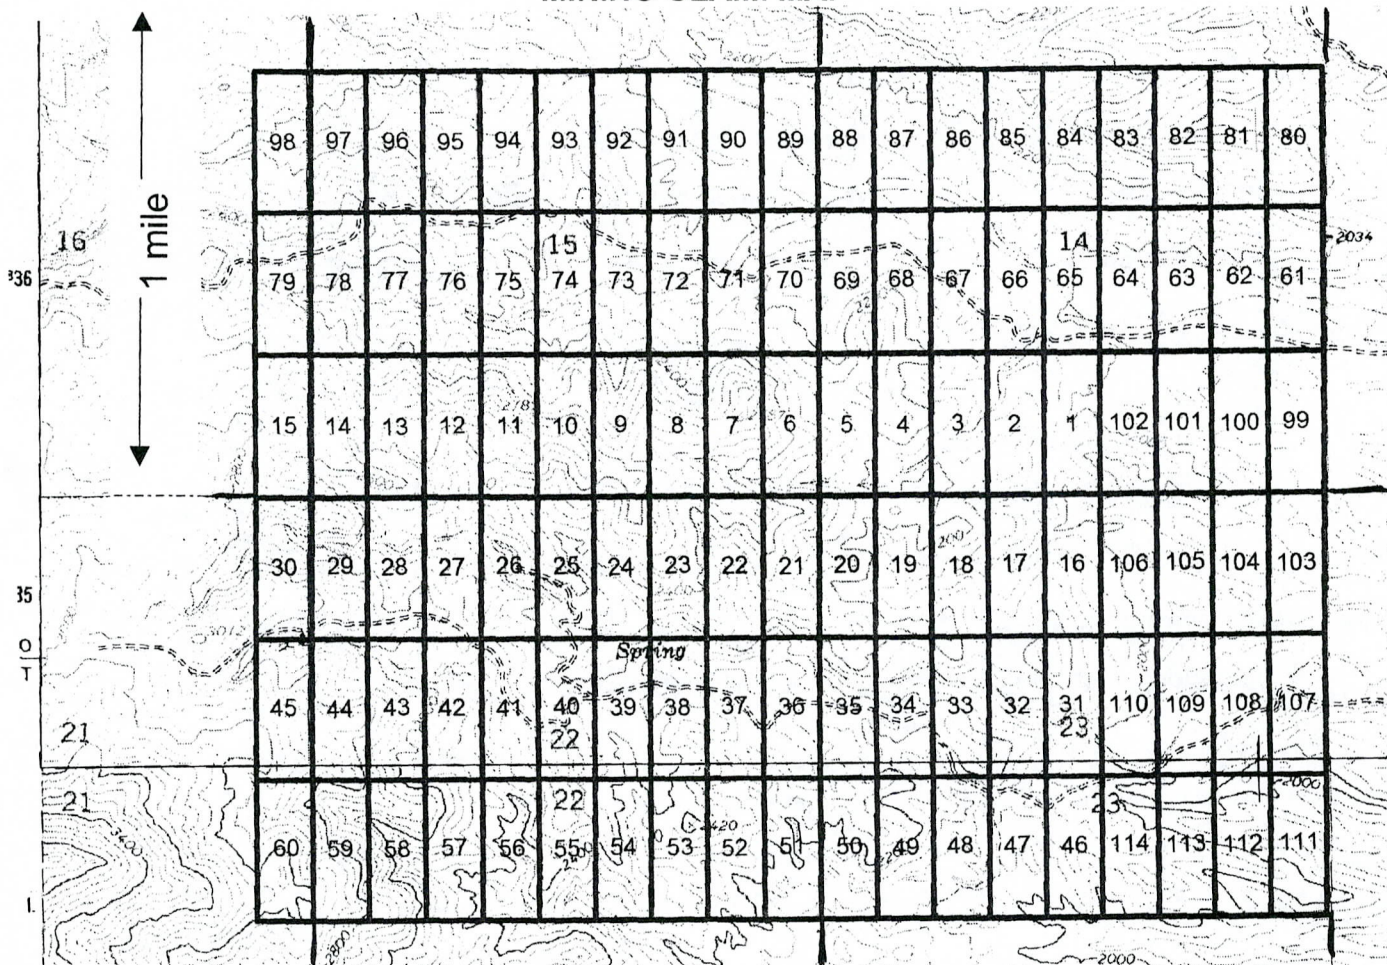 98 97 96 95 94 93 92 91 90 89 88 87 86 85 84 83 82 81 80
1 mile
16 15 14 2034
336
79 78 77 76 75 74 73 72 71 70 69 68 67 66 65 64 63 62 61
15 14 13 12 11 10 9 8 7 6 5 4 3 2 1 102 101 100 99
30 29 28 27 26 25 24 23 22 21 20 19 18 17 16 106 105 104 103
35
O
T
Spring
45 44 43 42 41 40 39 38 37 36 35 34 33 32 31 110 109 108 107
21 22 23
21 22 23 2000
3400 2420
60 59 58 57 56 55 54 53 52 51 50 49 48 47 46 114 113 112 111
2400
2800 2000